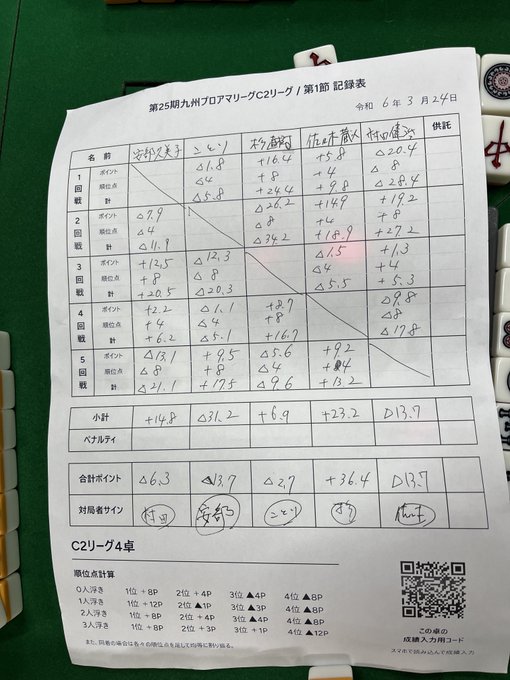 第25期九州プロアマリーグC2リーグ / 第1節 記録表
令和 6年 3月 24日
名前 安部久美子 ことり 佐々木蔵人 村田 供託
1回戦 ポイント △1.8 +16.4 +5.8 △20.4
順位点 △4 +8 +4 △8
計 △5.8 +24.4 +9.8 △28.4
2回戦 ポイント △7.9 △26.2 +14.9 +19.2
順位点 △4 △8 +4 +8
計 △11.9 △34.2 +18.9 +27.2
3回戦 ポイント +12.5 △12.3 △1.5 +1.3
順位点 +8 △8 △4 +4
計 +20.5 △20.3 △5.5 +5.3
4回戦 ポイント +2.2 △1.1 +8.7 △9.8
順位点 +4 △4 +8 △8
計 +6.2 △5.1 +16.7 △17.8
5回戦 ポイント △13.1 +9.5 △5.6 +9.2
順位点 △8 +8 △4 +4
計 △21.1 +17.5 △9.6 +13.2
小計 +14.8 △31.2 +6.9 +23.2 △13.7
ペナルティ
合計ポイント △6.3 △13.7 △2.7 +36.4 △13.7
対局者サイン 村田 安部 ことり 杉 佐々木
C2リーグ4卓
順位点計算
0人浮き 1位 +8P 2位 +4P 3位 ▲4P 4位 ▲8P
1人浮き 1位 +12P 2位 ▲1P 3位 ▲3P 4位 ▲8P
2人浮き 1位 +8P 2位 +4P 3位 ▲4P 4位 ▲8P
3人浮き 1位 +8P 2位 +3P 3位 +1P 4位 ▲12P
また、同着の場合は各々の順位点を足して均等に割り振る。
この卓の
成績入力用コード
スマホで読み込んで成績入力